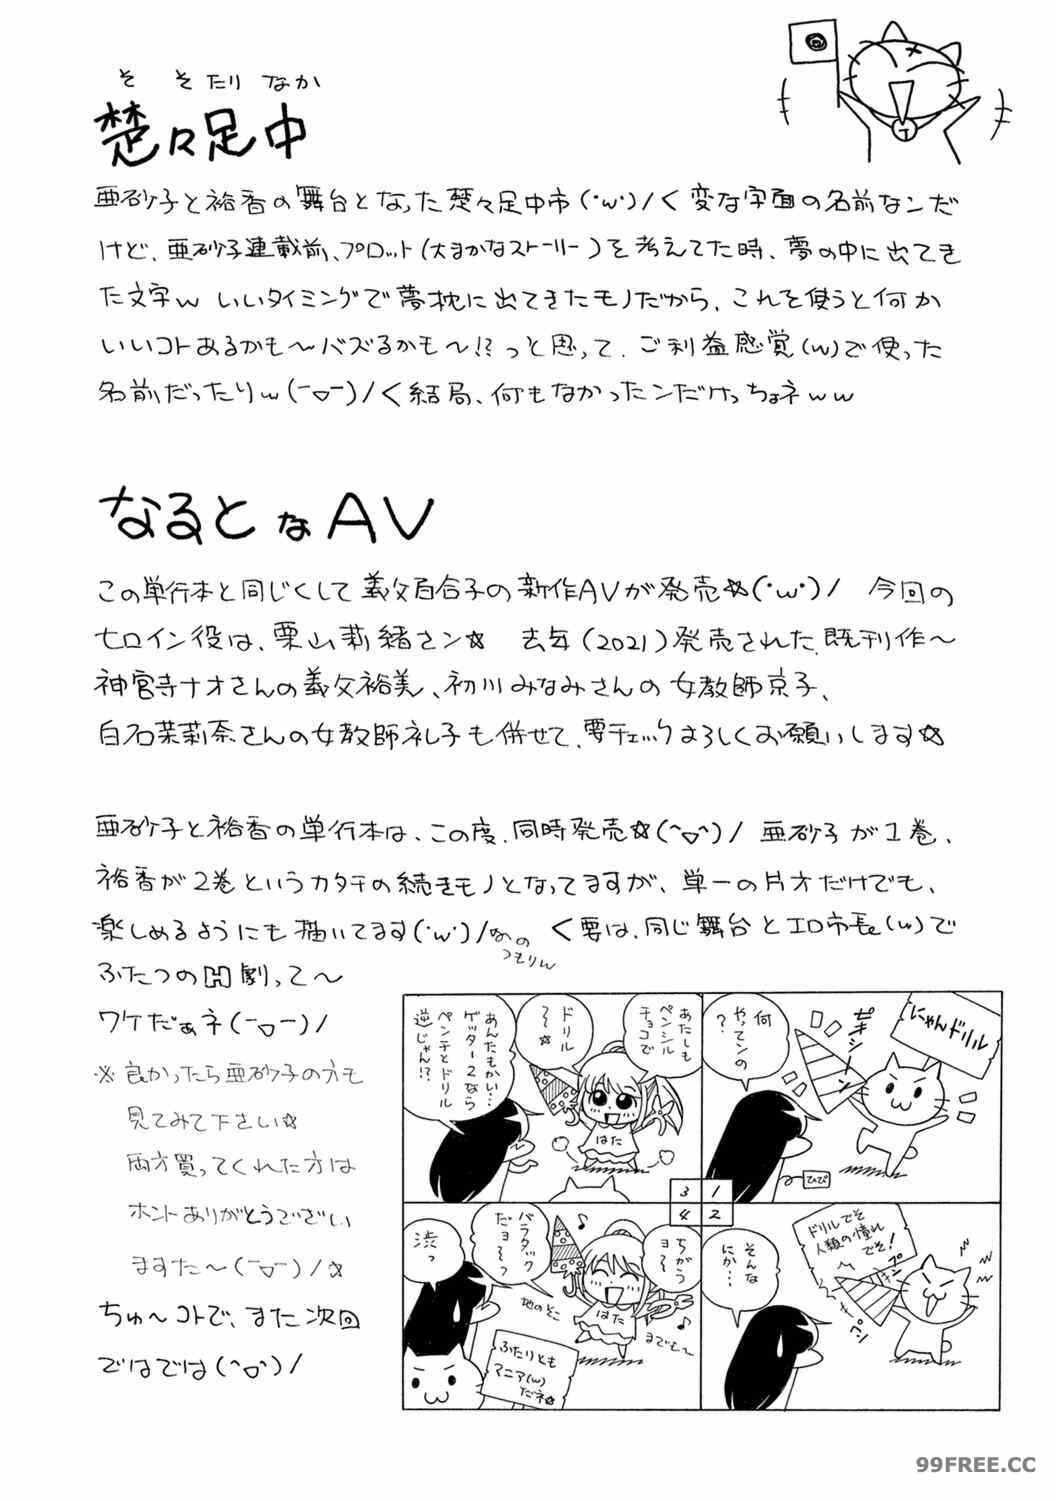 そ そたり なか
楚々足中
亜砂子と裕香の舞台となった楚々足中市(･ω･)/く変な字面の名前なンだ
けど、亜砂子連載前、プロット(大まかなストーリー)を考えてた時、夢の中に出てき
た文字w いいタイミングで夢枕に出てきたモノだから、これを使うと何か
いいコトあるかも～バズるかも～!?っと思って、ご利益感覚(w)で使った
名前だったりw(ー▽ー)/く結局、何もなかったンだけっちょネww
なるとなAV
この単行本と同じくして義父百合子の新作AVが発売☆(･ω･)/ 今回の
ヒロイン役は、栗山莉緒さン☆ 去年(2021)発売された既刊作～
神宮寺ナオさんの義父裕美、初川みなみさんの女教師京子、
白石茉莉奈さんの女教師礼子も併せて、要チェックよろしくお願いします☆
亜砂子と裕香の単行本は、この度、同時発売☆(^▽^)/ 亜砂子が1巻、
裕香が2巻というカタチの続きモノとなってますが、単一の片オだけでも、
楽しめるようにも描いてます(･ω･)/ なのつもりw く要は、同じ舞台とエロ市長(w)で
ふたつのH劇って～
ワケだぁネ(ー▽ー)/
※良かったら亜砂子の方も
見てみて下さい☆
両方買ってくれた方は
ホントありがとうござい
ますた～(ー▽ー)/☆
ちゅ～コトで、また次回
ではでは(^▽^)/
にゃんドリル
ギュイーン
何
やってンの
?
てぴぴ
1
ドリルでそ
人類の憧れ
でそ!
そんな
にか…
2
あたしも
ペンシル
チョコで
ドリル
～～☆
あんたもかい…
ゲッター2なら
ペンチとドリル
逆じゃん!?
はた
3
ちがう
ヨ～～
バラタック
だヨ～～っ
渋っ
地のそこ
までも～♪
はた
ふたりとも
マニア(w)
だネ☆
4
99FREE.CC